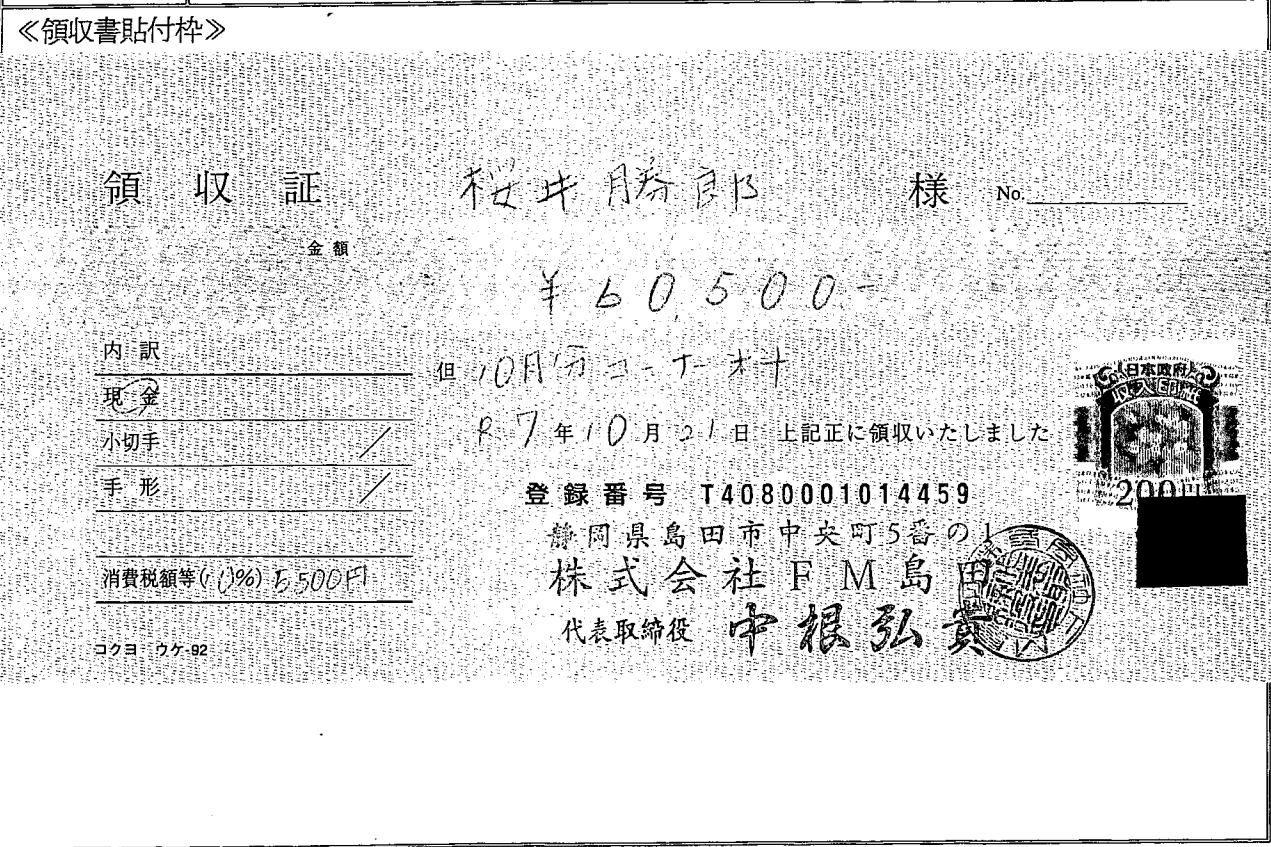 ≪領収書貼付枠≫
領収証 桜井勝郎 様 No.
金額
¥60,500-
内訳
現金
小切手 /
手形 /
消費税額等(10%) 5,500円
コクヨ ウケ-92
但 10月分コーナー料
R7年10月21日 上記正に領収いたしました
登録番号 T4080001014459
静岡県島田市中央町5番の1
株式会社FM島田
代表取締役 中根弘貴
日本政府
収入印紙
200円